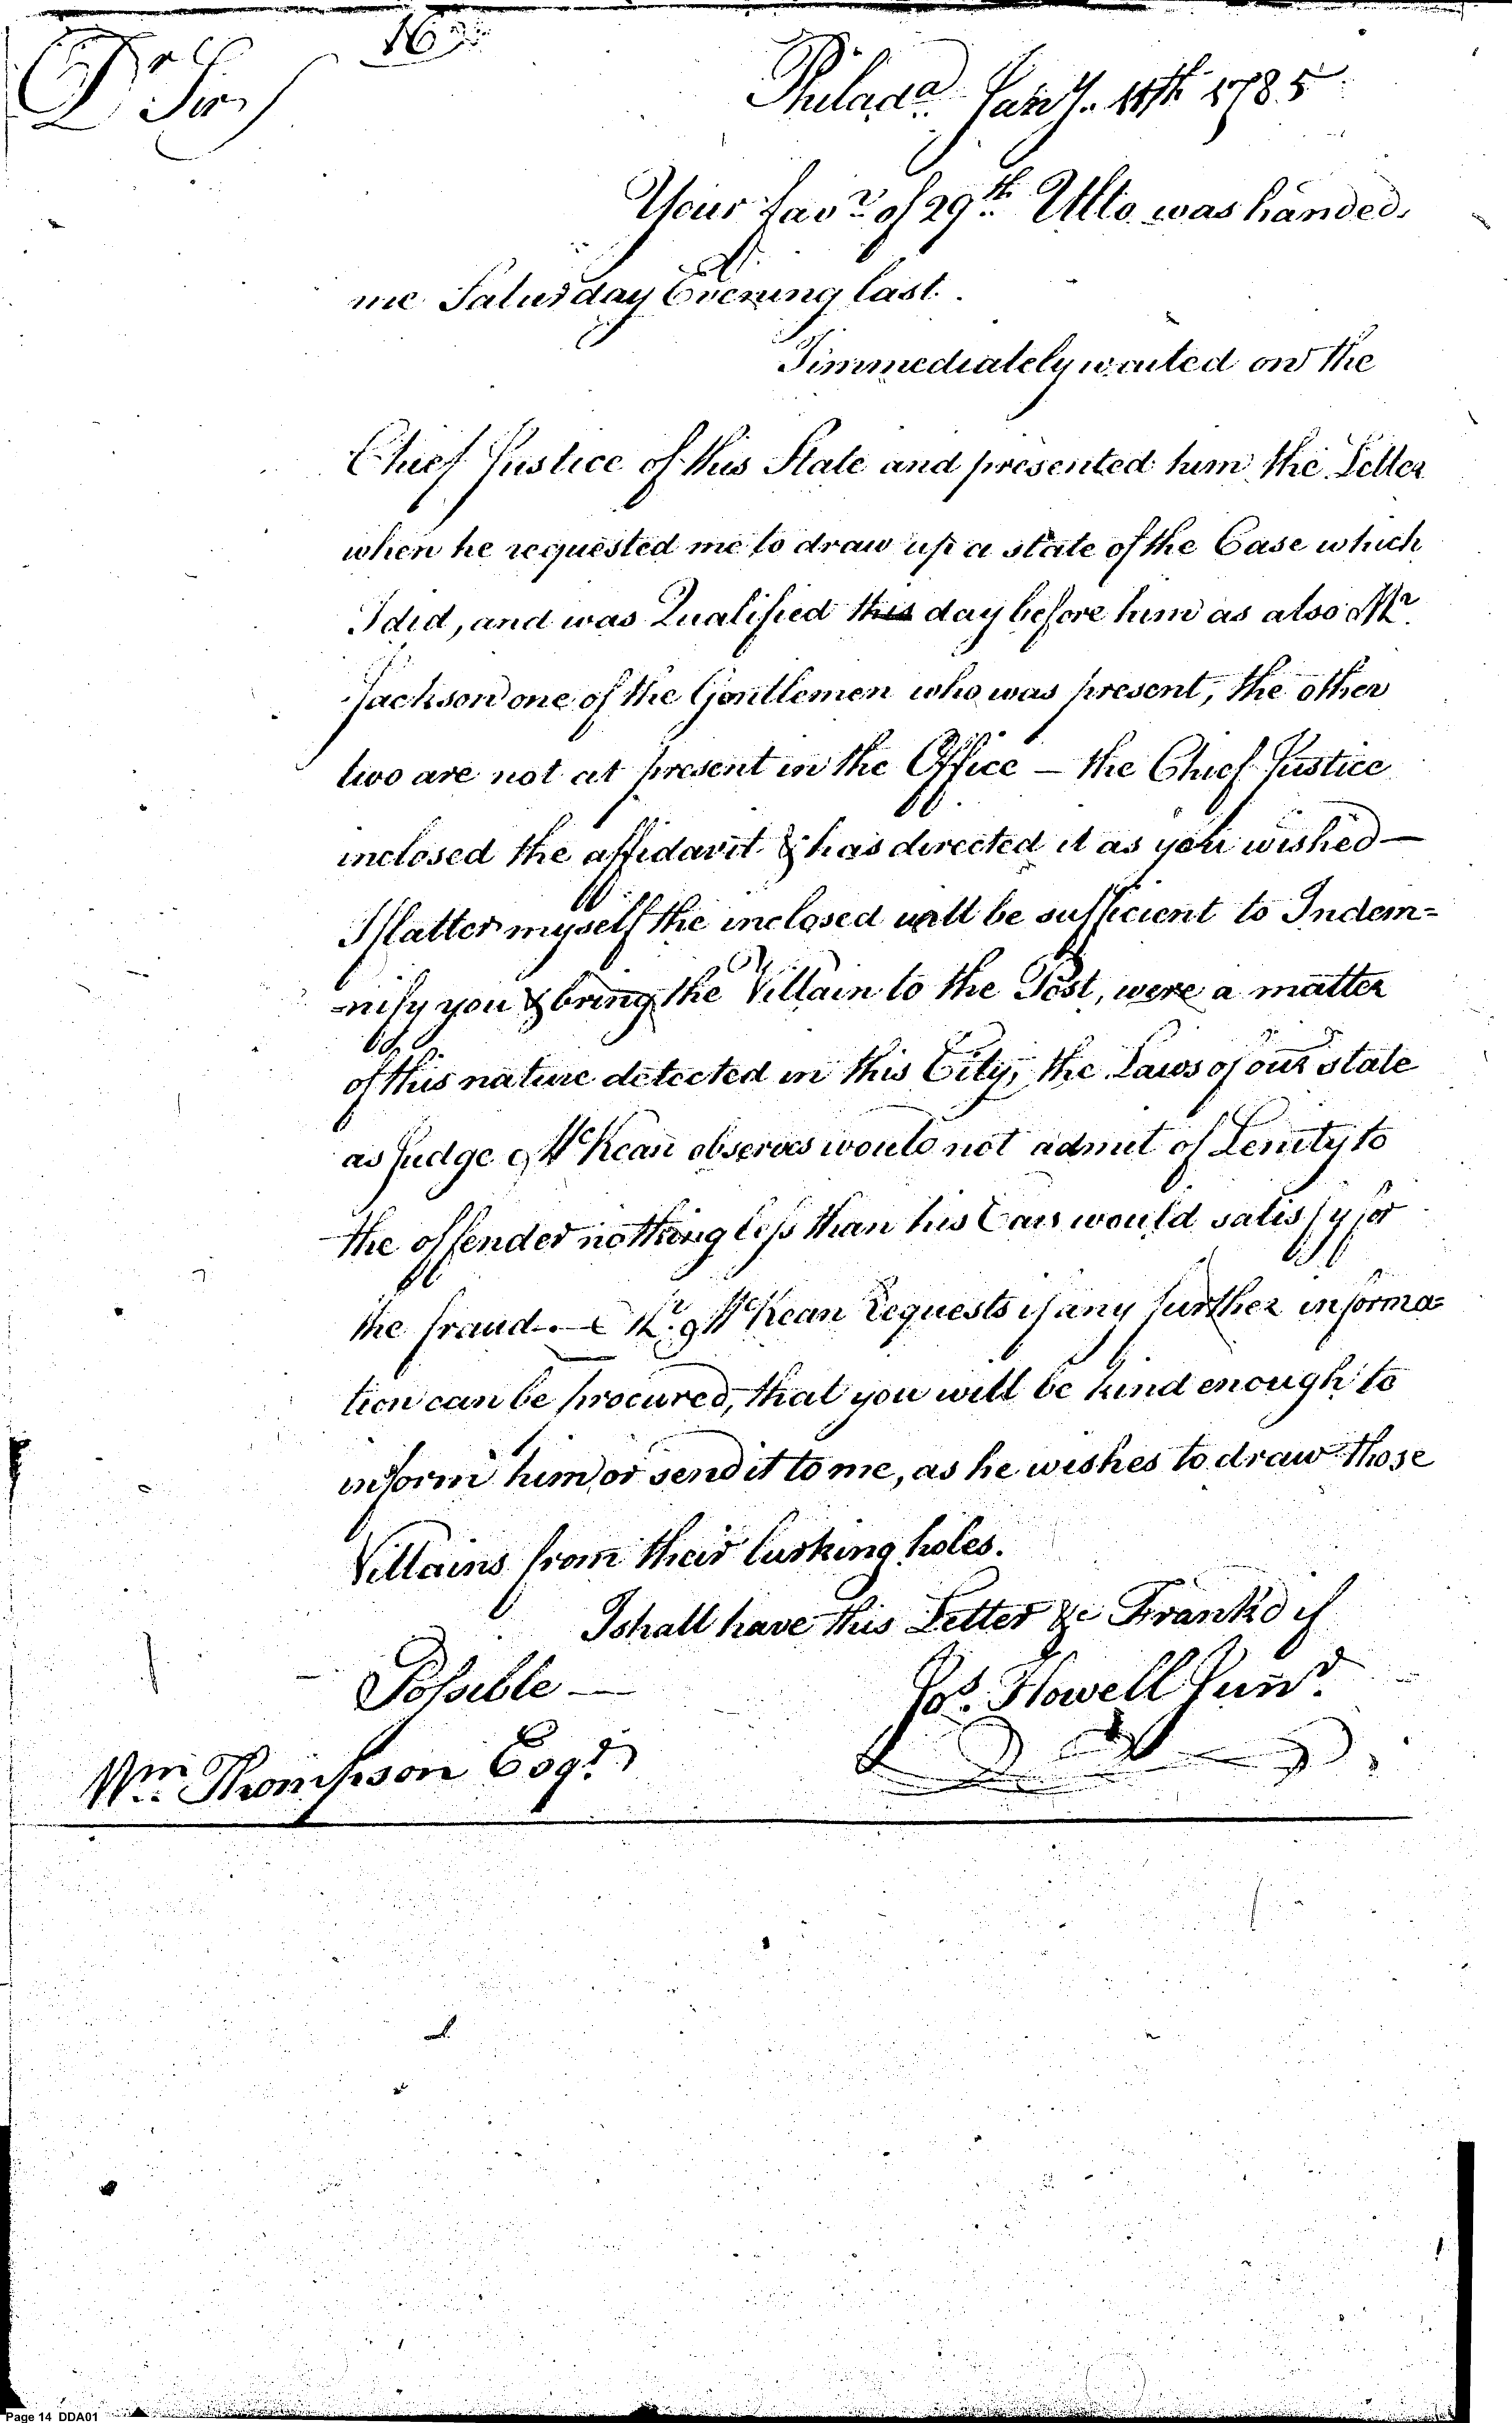 16
Dr Sir,
Philada. Jany. 11th 1785
Your favr. of 29th. Ulto was handed
me Saturday Evening last.
I immediately waited on the
Chief Justice of this State and presented him the Letter
when he requested me to draw up a state of the Case which
I did, and was Qualified this day before him as also Mr.
Jackson one of the Gentlemen who was present, the other
two are not at present in the Office — the Chief Justice
inclosed the affidavit & has directed it as you wished —
I flatter myself the inclosed will be sufficient to Indem=
=nify you & bring the Villain to the Post, were a matter
of this nature detected in this City, the Laws of our state
as Judge McKean observes would not admit of Lenity to
the offender nothing less than his Ears would satisfy for
the fraud. — Mr. McKean Requests if any further informa=
tion can be procured, that you will be kind enough to
inform him or send it to me, as he wishes to draw those
Villains from their lurking holes.
I shall have this Letter &c Frank'd if
Possible —
Jos. Howell Junr.
Wm. Thompson Esqr.
Page 14 DDA01